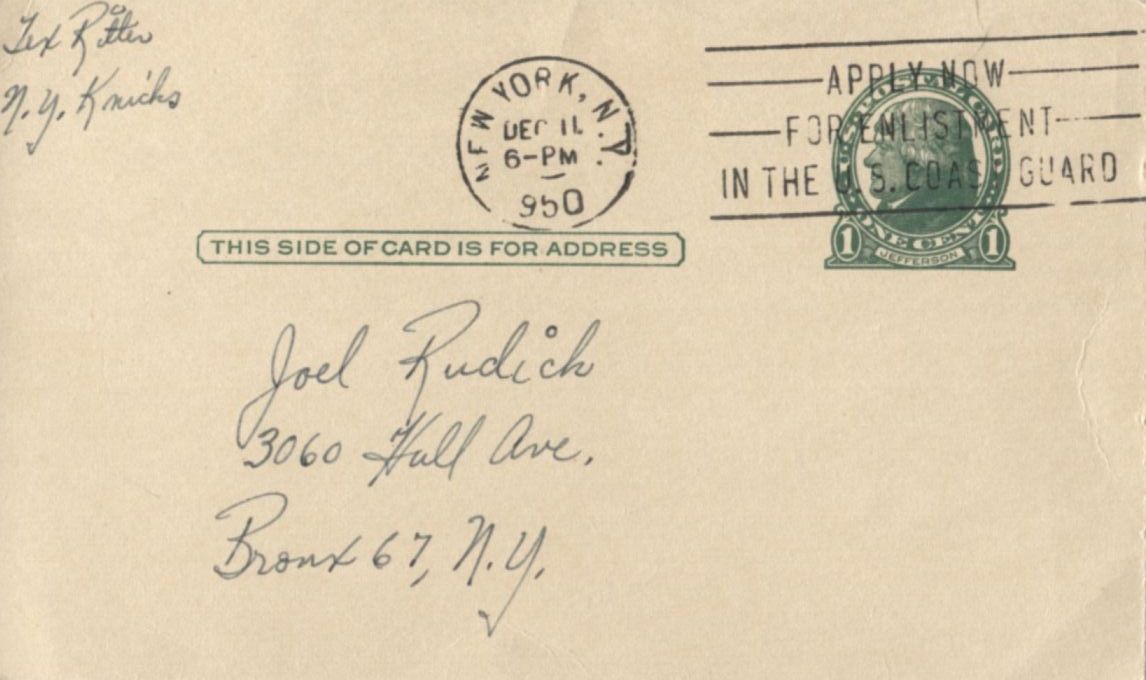 Tex Ritter
N.Y. Knicks
NEW YORK, N.Y.
DEC 11
6-PM
950
APPLY NOW
FOR ENLISTMENT
IN THE U.S. COAST GUARD
U.S. POSTAL CARD
ONE CENT
1 JEFFERSON 1
THIS SIDE OF CARD IS FOR ADDRESS
Joel Rudick
3060 Hull Ave.
Bronx 67, N.Y.